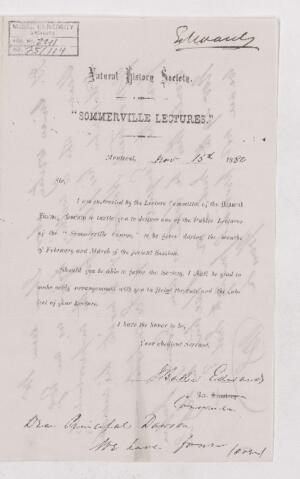 McGILL UNIVERSITY
ARCHIVES
ACC. NO. 2211
REF. 75/114
Edwards
Natural History Society.
"SOMMERVILLE LECTURES."
Montreal, Nov 15th 1880
Sir,
I am instructed by the Lecture Committee of the Natural
History Society to invite you to deliver one of the Public Lectures
of the "Sommerville Course," to be given during the months
of February and March of the present Session.
Should you be able to favor the Society, I shall be glad to
make early arrangements with you to fixing the date and the sub-
ject of your Lecture.
I have the honor to be,
Your obedient Servant,
J Baker Edwards
Convener
Dear Principal Dawson,
We have found (over)